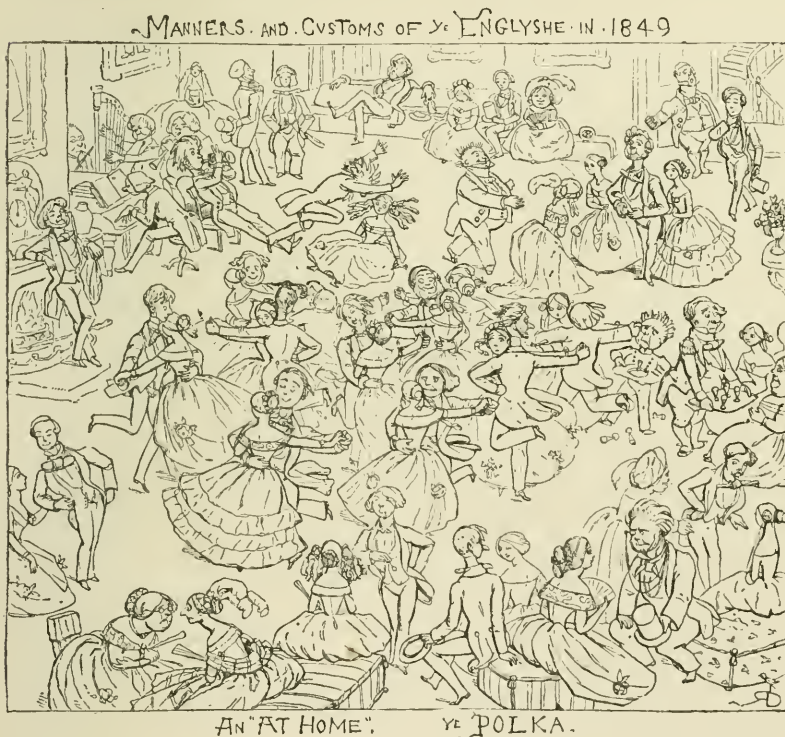 MANNERS. AND. CVSTOMS OF Ye ENGLYSHE. IN. 1849
AN "AT HOME". Ye POLKA.